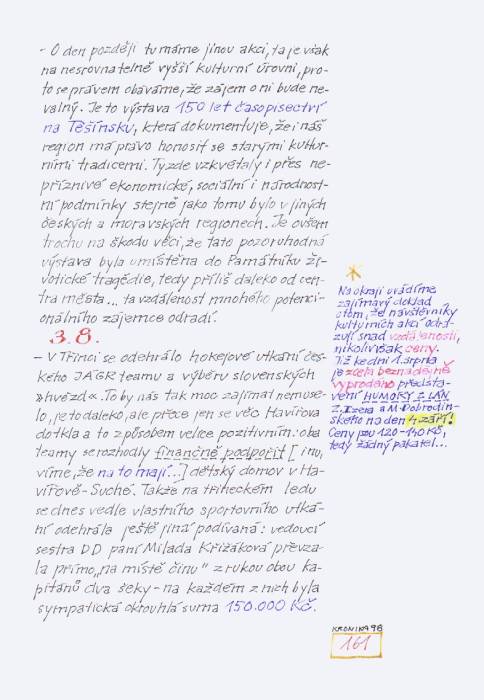 - O den později tu máme jinou akci, ta je však
na nesrovnatelně vyšší kulturní úrovni, pro-
to se právem obáváme, že zájem o ni bude ne-
valný. Je to výstava 150 let časopisectví
na Těšínsku, která dokumentuje, že i náš
region má právo honosit se starými kultur-
ními tradicemi. Ty zde vzkvétaly i přes ne-
příznivé ekonomické, sociální i národnost-
ní podmínky stejně jako tomu bylo v jiných
českých a moravských regionech. Je ovšem
trochu na škodu věci, že tato pozoruhodná
výstava byla umístěna do Památníku ži-
votické tragédie, tedy příliš daleko od cen-
tra města... ta vzdálenost mnohého potenci-
onálního zájemce odradí.
3.8.
- V Třinci se odehrálo hokejové utkání čes-
kého JÁGR teamu a výběru slovenských
»hvězd«. To by nás tak moc zajímat nemuse-
lo, je to daleko, ale přece jen se věc Havířova
dotkla a to způsobem velice pozitivním: oba
teamy se rozhodly finančně podpořit [inu,
víme, že na to mají...] dětský domov v Ha-
vířově-Suché. Takže na třineckém ledu
se dnes vedle vlastního sportovního utká-
ní odehrála ještě jiná podívaná: vedoucí
sestra DD paní Milada Křižáková převza-
la přímo „na místě činu" z rukou obou ka-
pitánů dva šeky - na každém z nich byla
sympatická okrouhlá suma 150.000 Kč.
*
Na okraji uvádíme
zajímavý doklad
o tom, že návštěvníky
kulturních akcí odra-
zují snad vzdálenosti,
nikoli však ceny.
Již ke dni 1. srpna
je zcela beznadějně
vyprodáno předsta-
vení HUMORY Z LÁN
Z. Izera a M. Dobrodin-
ského na den 4. září!
Ceny jsou 120-140 Kč,
tedy žádný pakatel...
KRONIKA 98
161